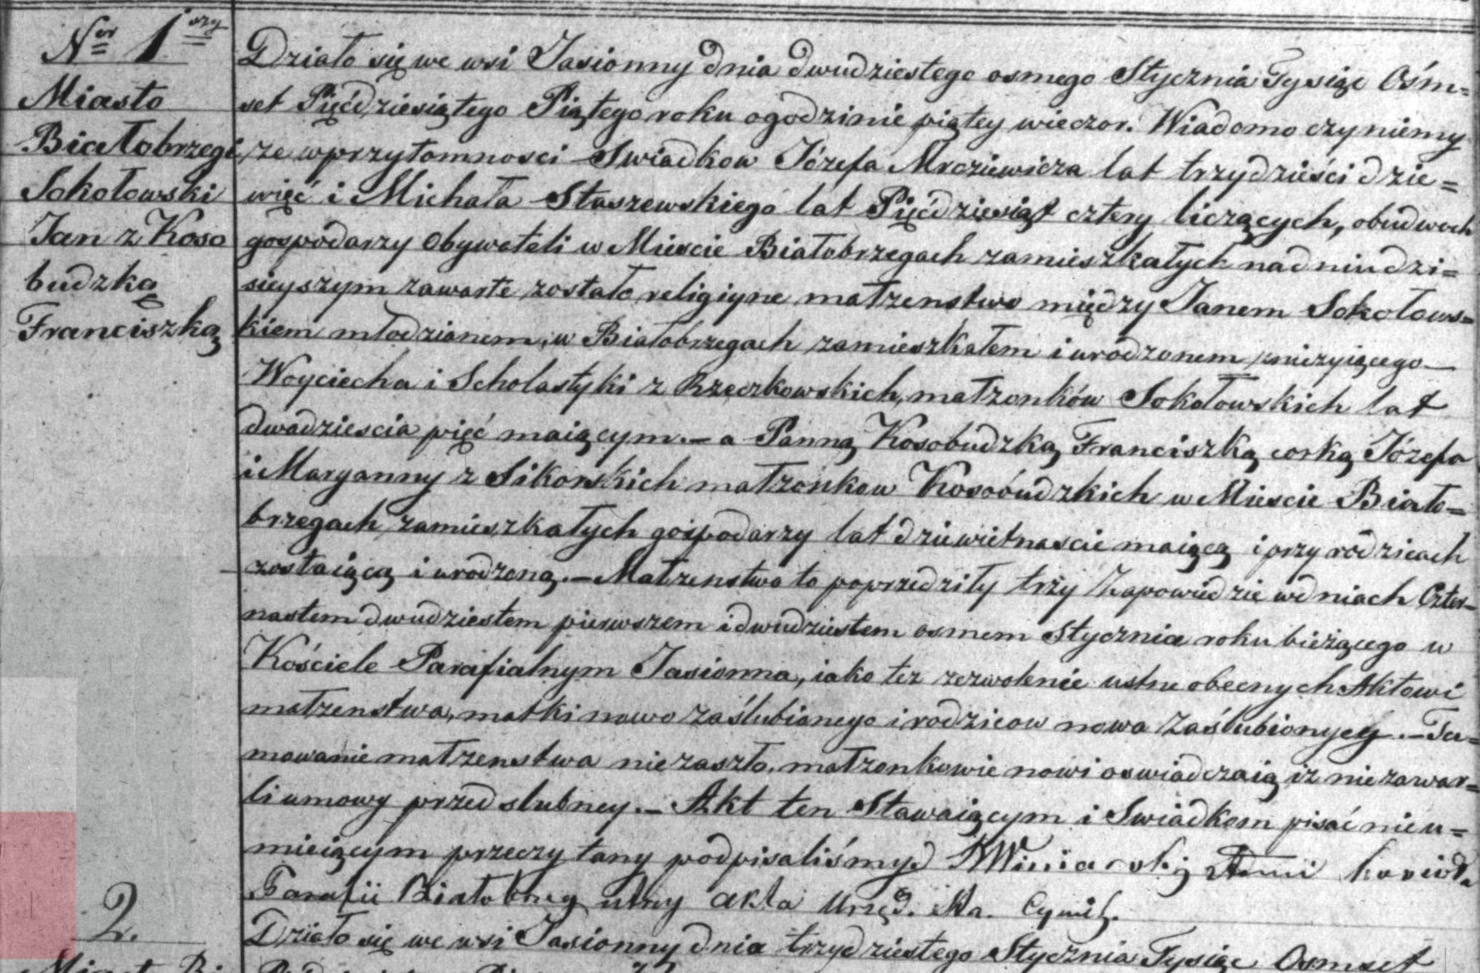 Nr 1wszy
Miasto
Białobrzegi
Sokołowski
Jan z Koso
budzką
Franciszką
Działo się we wsi Jasionny dnia dwudziestego osmego Stycznia Tysiąc Ośm=
set Pięćdziesiątego Piątego roku ogodzinie piątey wieczor. Wiadomo czyniemy
ze wprzytomnosci Swiadkow Józefa Mroziewicza lat trzydzieści dzie=
więć i Michała Staszewskiego lat Pięćdziesiąt cztery liczących, obudwoch
gospodarzy Obywateli w Miescie Białobrzegach zamieszkałych nad niu dzi=
sieyszym zawarte zostało religiyne małzenstwo między Janem Sokołows=
kiem młodzianem, w Białobrzegach zamieszkałem i urodzonem znieżyiącego
Woyciecha i Scholastyki z Rzeczkowskich, małzonków Sokołowskich lat
dwadziescia pięć maiącym.— a Panną Kosobudzką Franciszką corką Józefa
i Maryanny z Sikorskich małzonkow Kosobudzkich w Miescie Biało=
brzegach zamieszkałych gospodarzy lat dziewietnascie maiącą i przy rodzicach
zostaiącą i urodzoną.— Małzenstwo to poprzedziły trzy Zapowiedzie wdniach Czter=
nastem dwudziestem pierwszem i dwudziestem osmem Stycznia roku bieżącego w
Kościele Parafialnym Jasionna, iako tez zezwolenie ustne obecnych Aktowi
małzenstwa, matki nowo zaślubionego i rodzicow nowo zaślubionyey.— Ta=
mowanie małzenstwa nie zaszło, małzonkowie nowi oswiadczaią iz nie zawar=
li umowy przed slubney.— Akt ten Stawaiącym i Swiadkom pisać nie u=
mieiącym przeczytany podpisaliśmy
Parafii Białobrzeg utrzy akta Urzęd. Sta. Cywil.
2.
Działo się we wsi Jasionny dnia trzydziestego Stycznia Tysiąc Osmset